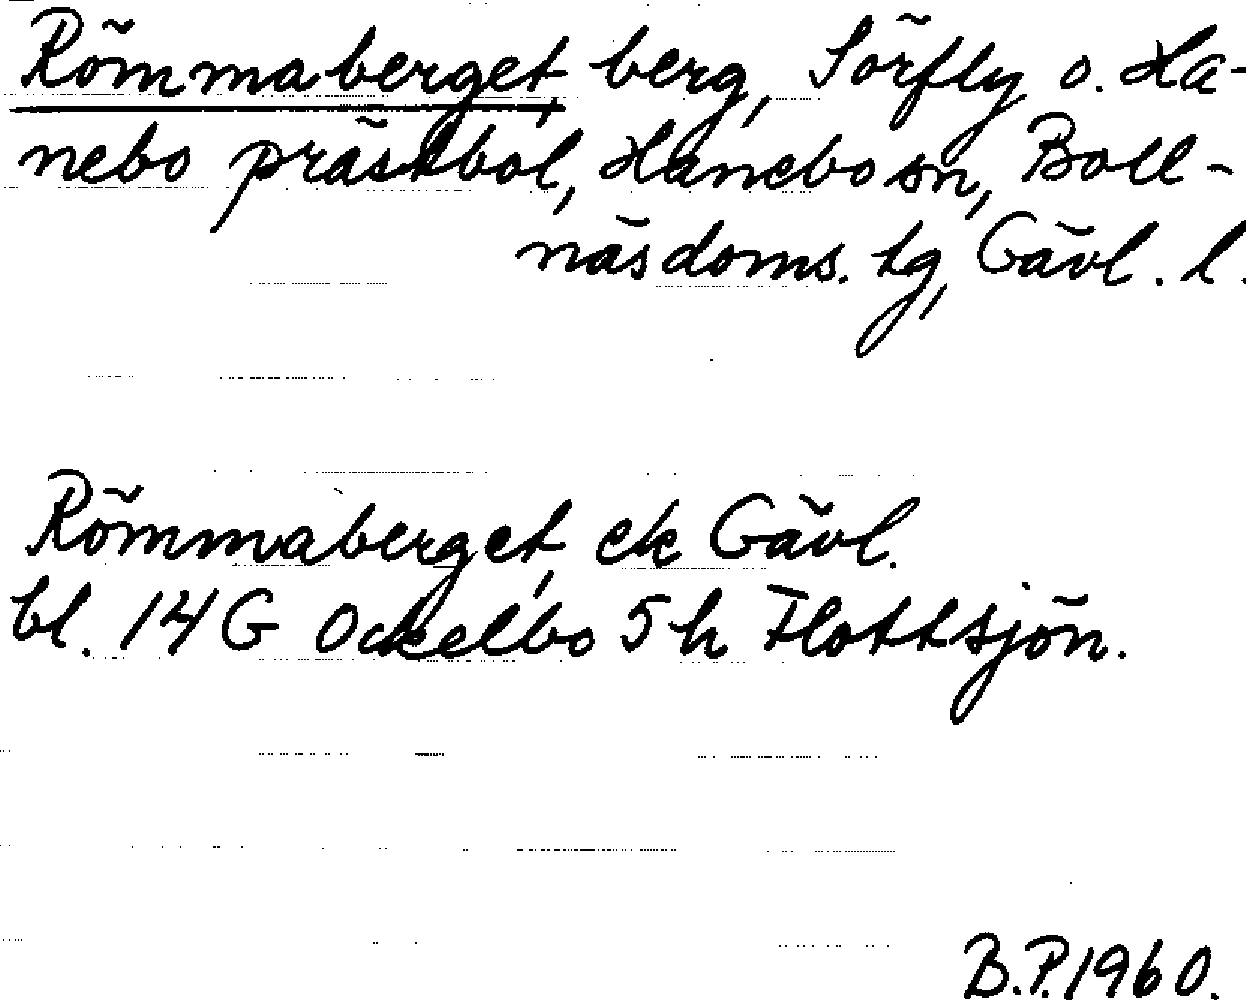 Römmaberget, berg, Sörfly o. Ha-
nebo prästbol, Hanebo sn, Boll-
näs doms. tg, Gävl. l.
Römmaberget, ek Gävl.
bl. 14 G Ockelbo 5 h Flottsjön.
B.P. 1960.